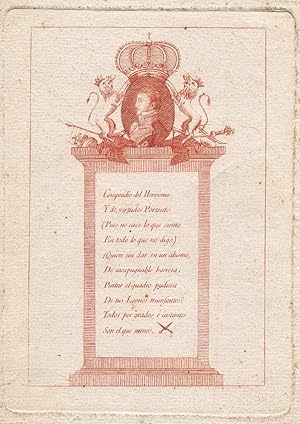 Compendio del Heroismo
Y de virtudes Portento
(Pues no cave lo que siento
En todo lo que no digo)
¿Quien sin dar en un abismo,
De inexpugnable barrera,
Pintar el quadro pudiera
De tus Leones triunfantes?
Todos por grados é instantes
Son el que menos.